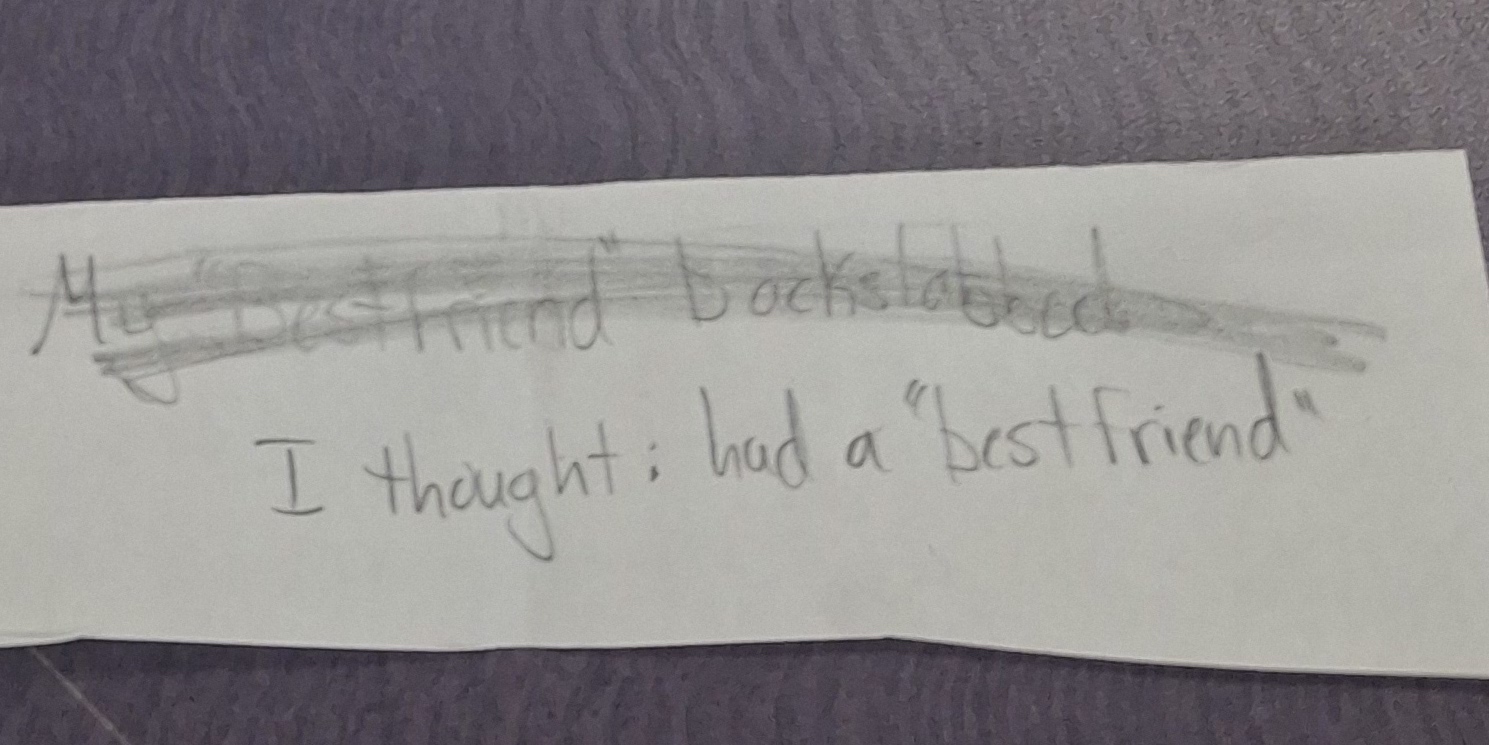 My "bestfriend" backstabbed
I thought i had a "bestfriend"